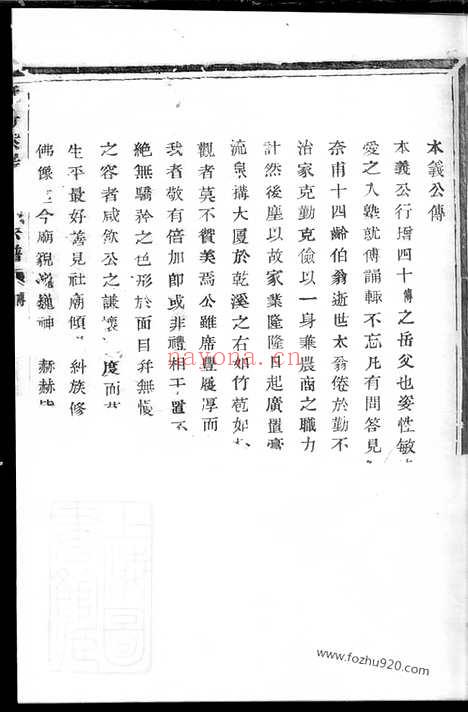 本義公傳
本義公行增四十傳之岳父也姿性敏
愛之入塾就傅誦輒不忘凡有問答見
奈甫十四齡伯翁逝世太翁倦於勤不
治家克勤克儉以一身兼農商之職力
計然後塵以故家業隆隆日起廣置膏
流泉搆大厦於乾溪之右如竹苞如
觀者莫不贊美焉公雖席豐履厚而
我者敬有倍加即或非禮相干置不
絶無驕矜之色形於面目幷無慢
之容者咸欽公之謙懷 度而
生平最好善見社廟傾 糾族修
佛像 今廟貌巍巍神 赫赫
宗譜 傳
nayona.cn
www.fozhu920.com